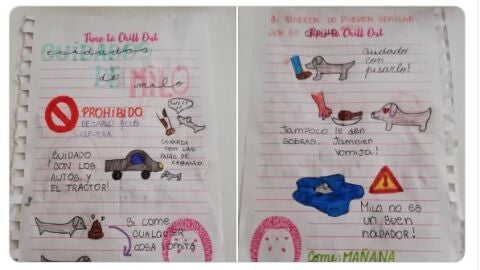 Time to Chill Out
cuidados
de
MILO
PROHIBIDO
DEJARLO SOLO
AFUERA.
CUIDADO
CON LAS
PATAS DE
CABALLO
CUIDADO
CON LOS
AUTOS, Y
EL TRACTOR!
Si come
CUALQUIER
COSA VOMITA
SI QUIEREN LO PUEDEN
Time to Chill Out
cuidado
con
pisarlo!
Tampoco le den
SOBRAS... También
Vomita!
Milo no es
un buen
nadador!
Come: MAÑANA